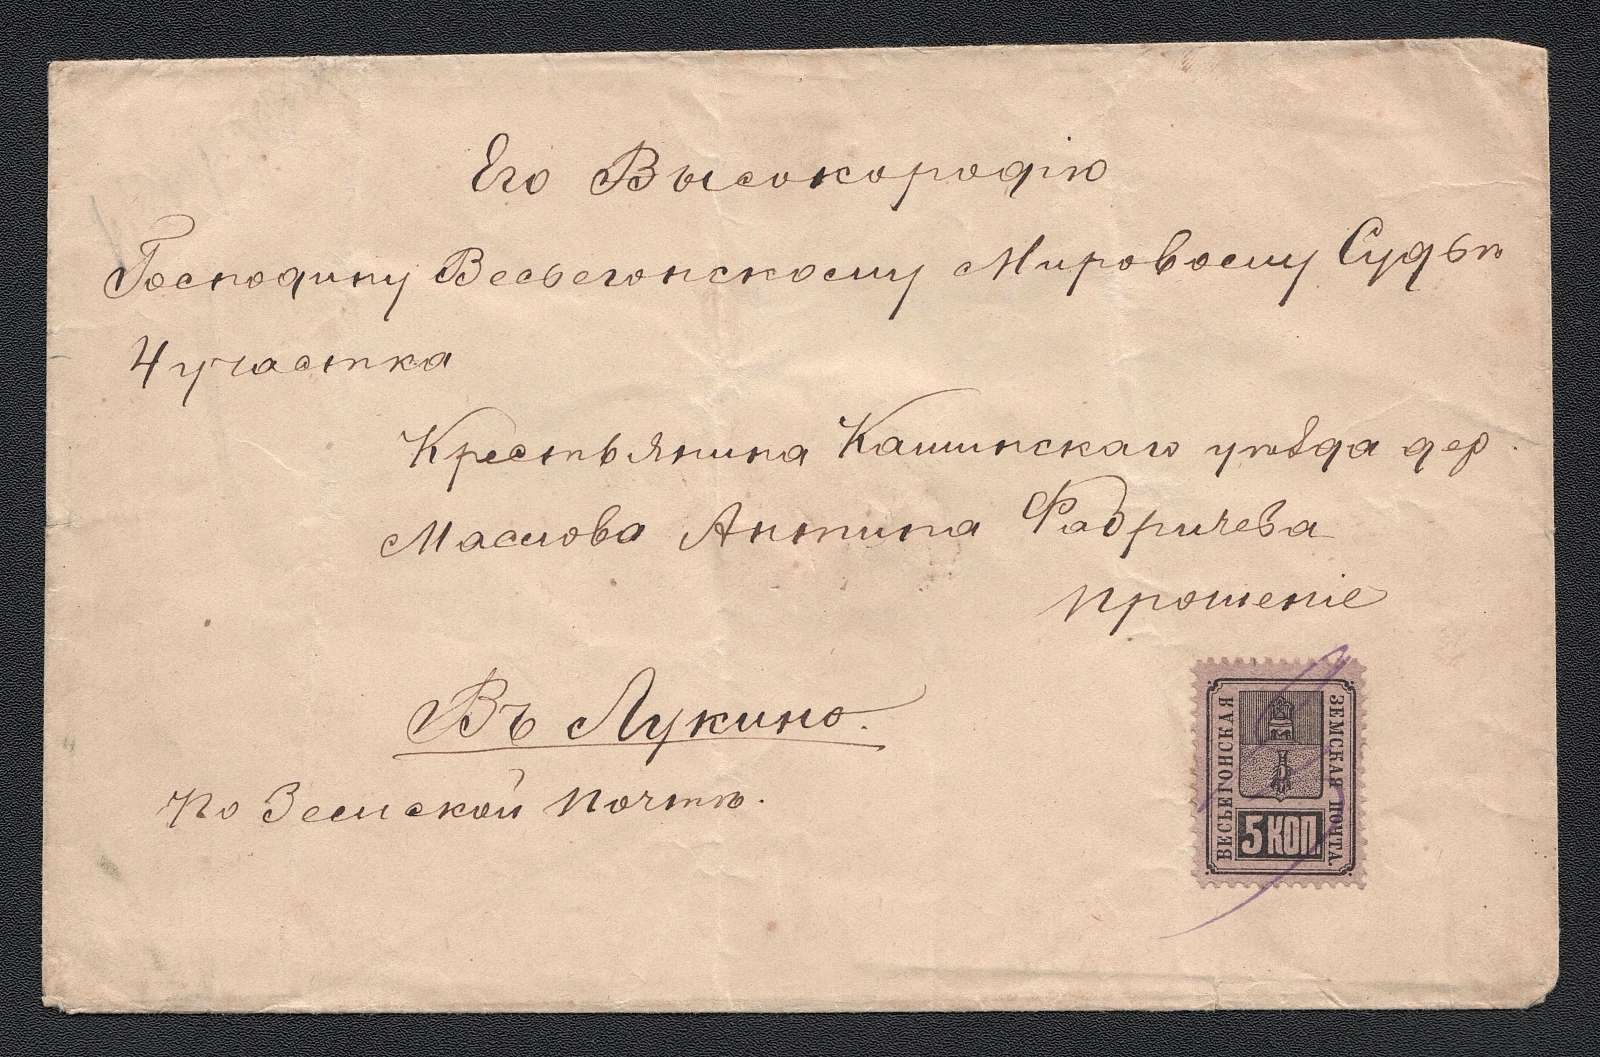 Его Высокородію
Господину Весьегонскому Мировому Судьѣ
4 участка
Крестьянина Кашинскаго уѣзда дер.
Маслова Антипа Фабричева
прошеніе
Въ Лукино.
По Земской почтѣ.
ВЕСЬЕГОНСКАЯ
ЗЕМСКАЯ ПОЧТА
5 КОП.